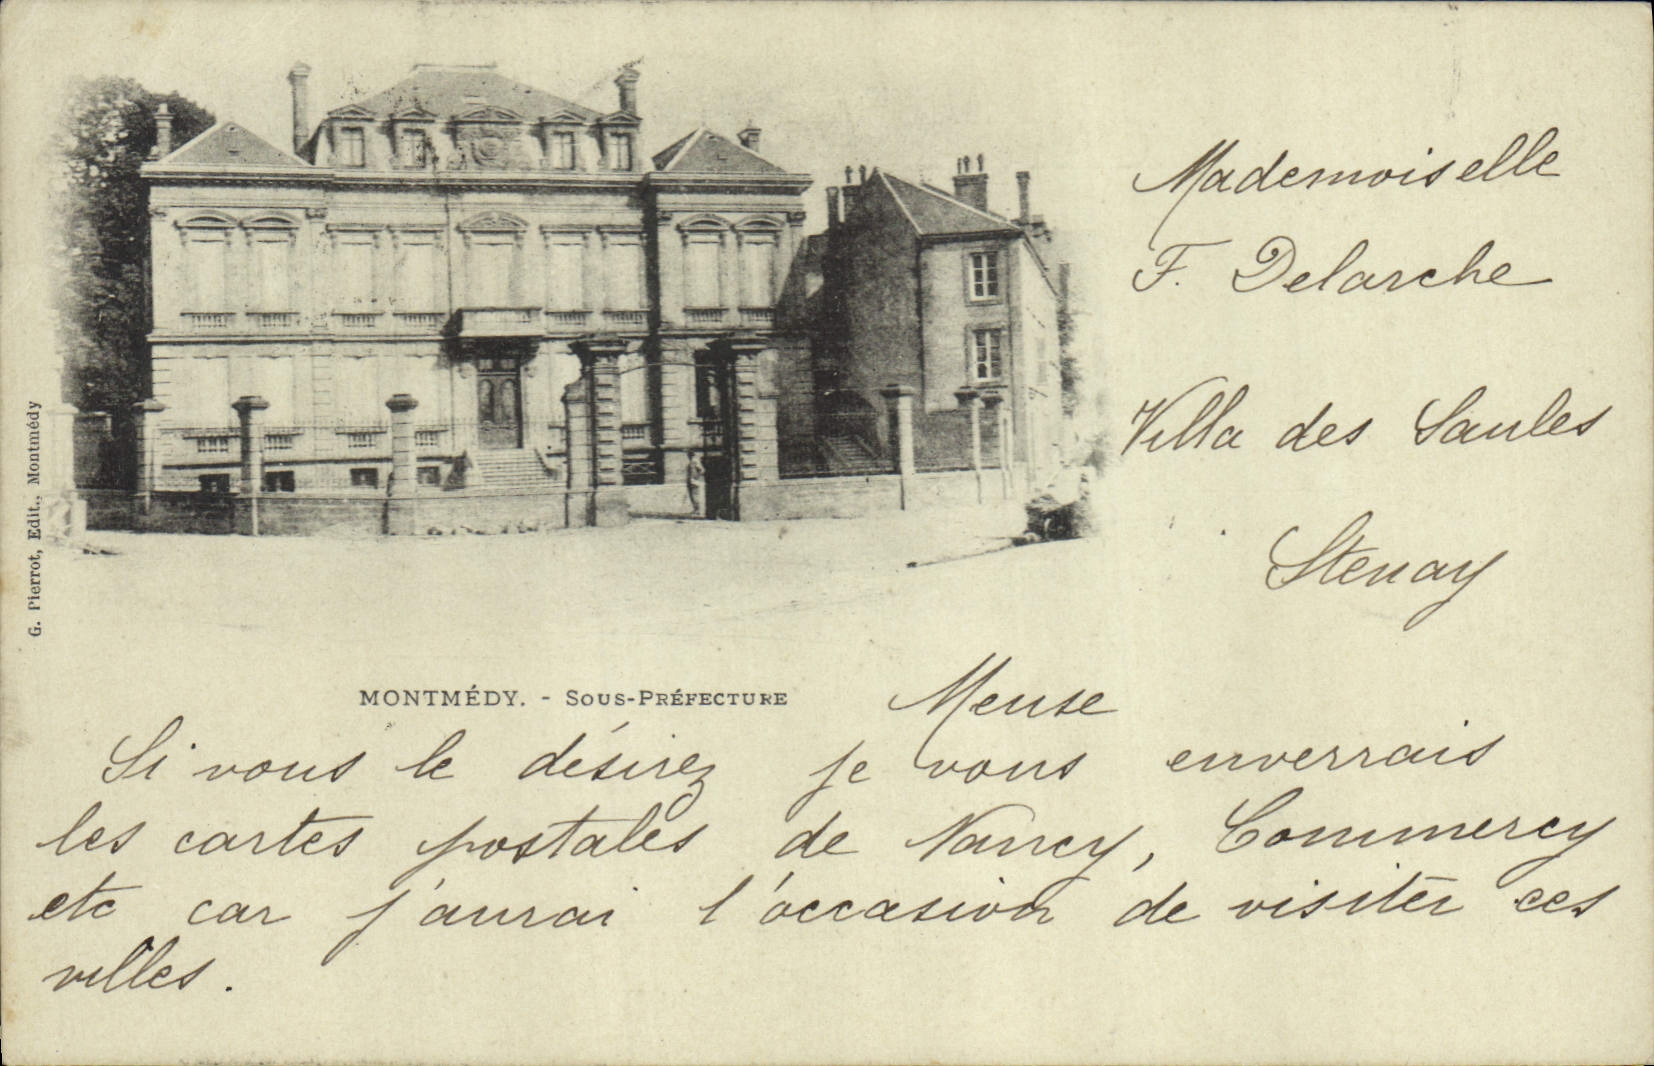 Mademoiselle
F. Delarche
Villa des Saules
Stenay
Meuse
G. Pierrot, Edit., Montmédy
MONTMÉDY. - SOUS-PRÉFECTURE
Si vous le désirez je vous enverrais
les cartes postales de Nancy, Commercy
etc car j'aurai l'occasion de visiter ces
villes.